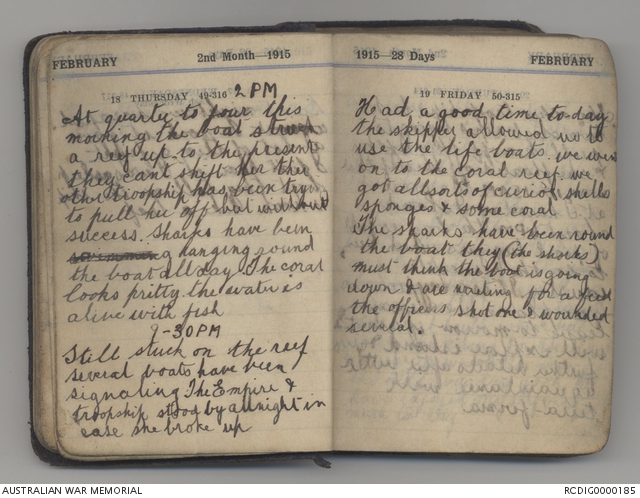 FEBRUARY 2nd Month—1915
18 THURSDAY 49-316 2 PM
At quarter to four this
morning the boat struck
a reef up-to the present
they cant shift her the
other troopship has been trying
to pull her off but without
success. Sharks have been
swimming hanging round
the boat all day. The coral
looks pretty. the water is
alive with fish
9-30 PM
Still stuck on the reef
several boats have been
signaling The Empire &
troopship stood by all night in
case she broke up
1915—28 Days FEBRUARY
19 FRIDAY 50-315
Had a good time to-day
the skipper allowed us to
use the life boats. we went
on to the coral reef. we
got all sorts of curios, shells
sponges & some coral
The sharks have been round
the boat they (the sharks)
must think the boat is going
down & are waiting for a feed
the officers shot one & wounded
several.
AUSTRALIAN WAR MEMORIAL RCDIG0000185